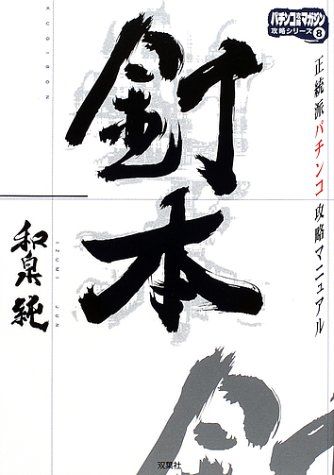 パチンコ攻略マガジン
攻略シリーズ8
正統派パチンコ攻略マニュアル
釘本
KUGIBON
和泉純
IZUMI JUN
双葉社